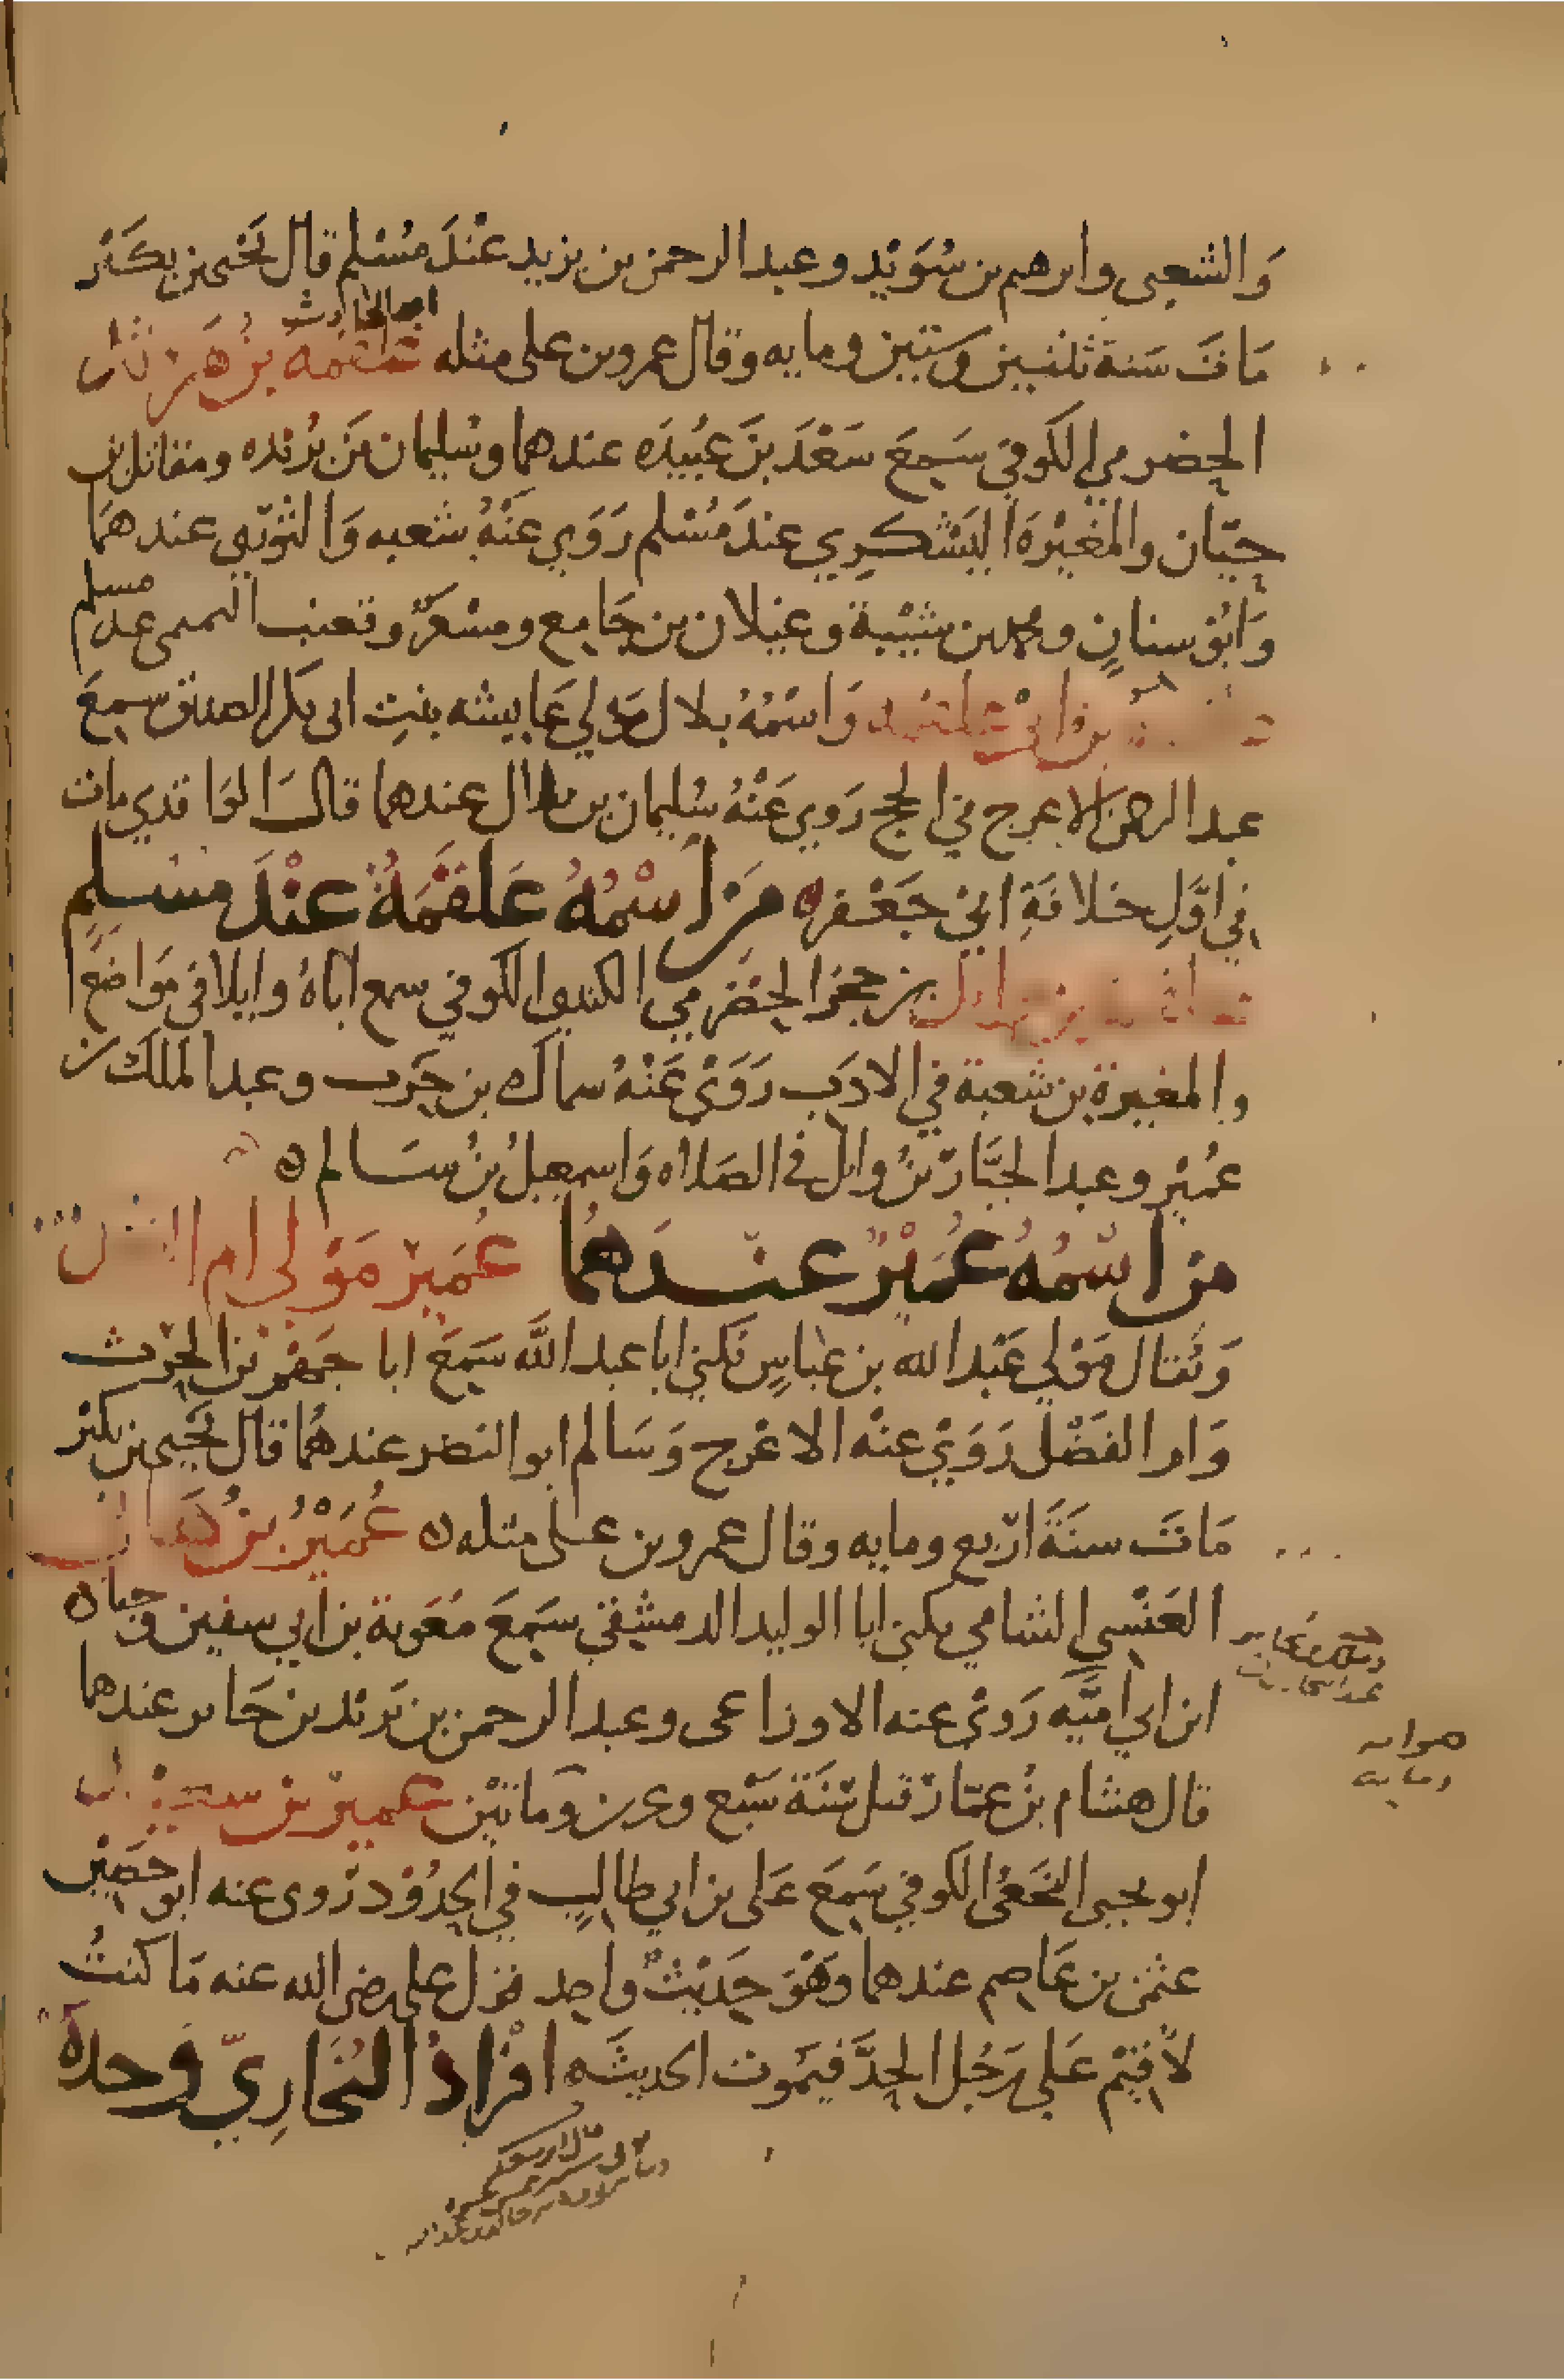 وَالشعبى وابرهيم بن سُوَيْد وعبد الرحمن بن يزيد عنْدَ مسُلم قال يَحْيى بن بكَيْر
مَاتَ سَنة ثلثين وستين ومايه وقال عمرو بن على مثله علقمه بن مَرْثد
الحضرمي الكوفي سَمِعَ سَعْدَ بنَ عُبيدَه عندهما وسُليمان بن بُرَيْده ومقاتل بن
حيّان والمغيْرَة اليَشْكرِي عندَ مسُلم رَوَي عَنْهُ شعبه وَالثوْرِي عندهمَا
وَابُو سنانٍ ومحمد بن شيْبة وغيْلان بن جَامِع ومسْعَرٌ وقعنب التميمى عند مسلم
علقمة بن ابي علقمه وَاسْمُهُ بلال مَولي عَايشه بنتِ ابى بكر الصديق سمِعَ
عبد الرحمن الاعرج في الحج رَوي عَنْهُ سُليمان بن بلال عندهما قالَ الوَاقدي مات
في اوَّلِ خلافَةِ ابي جَعْفر ه مَن اسْمُهُ عَلقَمَةُ عنْدَ مسُلمٍ
علقمة بن وائل بن حجر الحضْرمي الكندي الكوفي سمع اباهُ وايلا في مَواضعَ
والمغيرة بن شعبة في الادَب رَوَيْ عَنْهُ سماك بن حَرب وعبد الملك بن
عُميْر وعبد الجبَّارِ بنُ وايل في الصَلاه وَاسمعيلُ بنُ سَالم ه
من اسْمُهُ عُمَيْرٌ عنْدَهُما عُمَيْر مَوْلى ام الفضل
وَيُقال مَوْلي عَبْد الله بن عباسٍ يَكني ابا عبد اللَّه سَمِعَ ابا جهَيْمِ بن الحرْث
وَام الفَضْل رَوَيْ عنْه الاعْرج وَسَالم ابو النضر عندهُما قال يَحْيى بن بكير
مَاتَ سنَةَ ارْبع ومايه وقال عمرو بن على مثله ه عُمَيْرُ بنُ هَانى
العَنْسِي الشامي يكني ابا الوليد الدمشقي سَمِعَ مُعَوية بن ابي سفين وجناده
ابن ابي اميَّه رَوَيْ عنه الاوزاعى وعبد الرحمن بن يَزيْد بن جَابر عندهما
قال هشام بنُ عمّار قتل سَنَة سَبْع وعشرين وَمايَتَيْن عميْر بن سعيْد
ابو يحيى النخَعُى الكوفي سَمِعَ عَلى بن ابي طالبٍ في الحدُوْد رَوى عنه ابو حصَيْن
عثمن بن عَاصم عندهما وَهوَ حَديْثٌ واحد قول على رضى الله عنه مَا كنتُ
لأقيْم عَلى رَجُل الحدَّ فيَمُوت الحديثَ ه افْرَادُ البُخَارِيّ وَحدَهُ